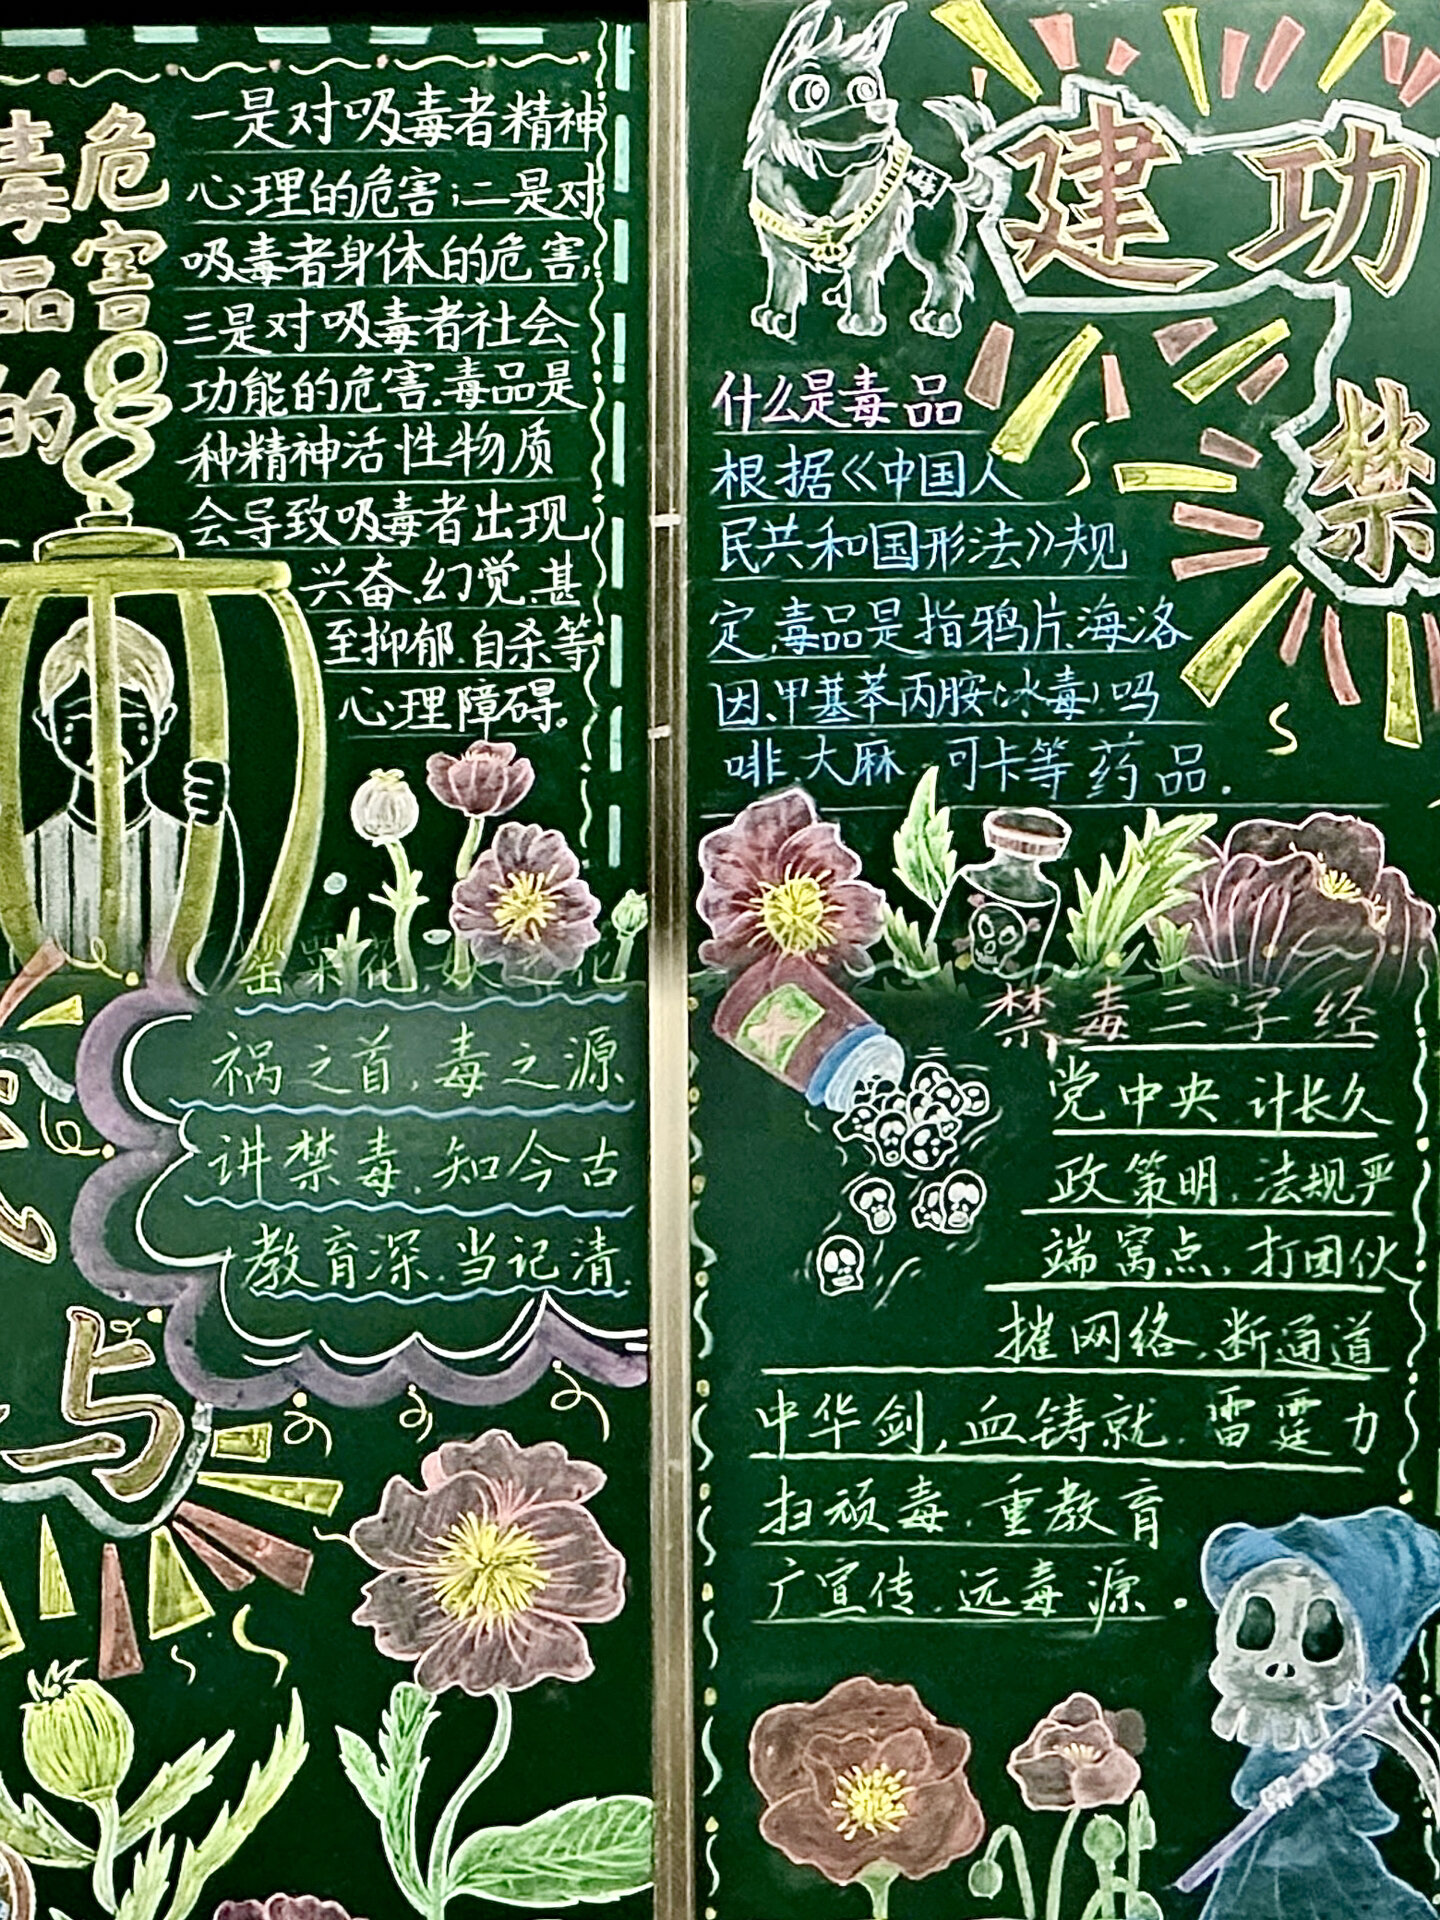 毒品的
危害
一是对吸毒者精神
心理的危害;二是对
吸毒者身体的危害;
三是对吸毒者社会
功能的危害.毒品是
种精神活性物质
会导致吸毒者出现
兴奋.幻觉.甚
至抑郁.自杀等
心理障碍。
罂粟花,妖之花
祸之首,毒之源
讲禁毒,知今古
教育深.当记清.
与
建功
禁
什么是毒品
根据《中国人
民共和国形法》规
定,毒品是指鸦片、海洛
因、甲基苯丙胺(冰毒)吗
啡、大麻、可卡等药品.
禁毒三字经
党中央 计长久
政策明,法规严
端窝点,打团伙
摧网络,断通道
中华剑,血铸就.雷霆力
扫顽毒.重教育
广宣传.远毒源。